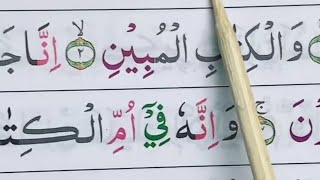 وَالْكِتٰبِ الْمُبِيْنِ ۙ﴿۲﴾ اِنَّا جَ
نَ ۚ﴿﴾ وَاِنَّهٗ فِيْۤ اُمِّ الْكِتٰ